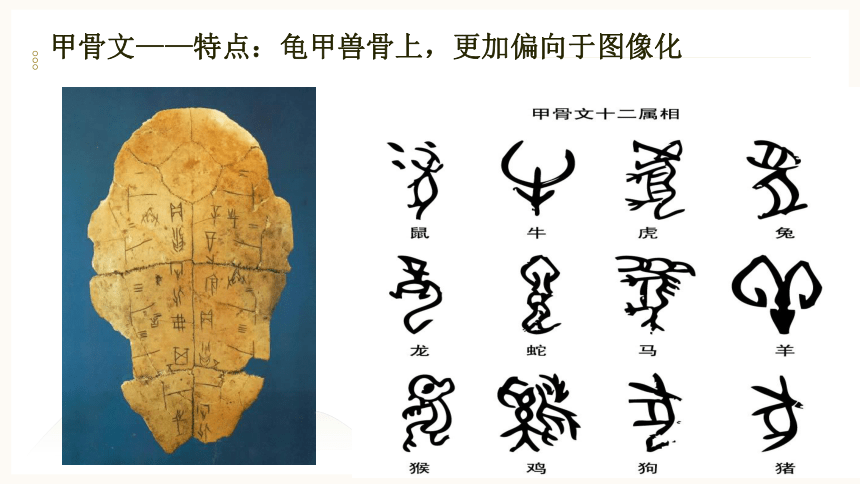 甲骨文——特点：龟甲兽骨上，更加偏向于图像化
甲骨文十二属相
鼠 牛 虎 兔
龙 蛇 马 羊
猴 鸡 狗 猪